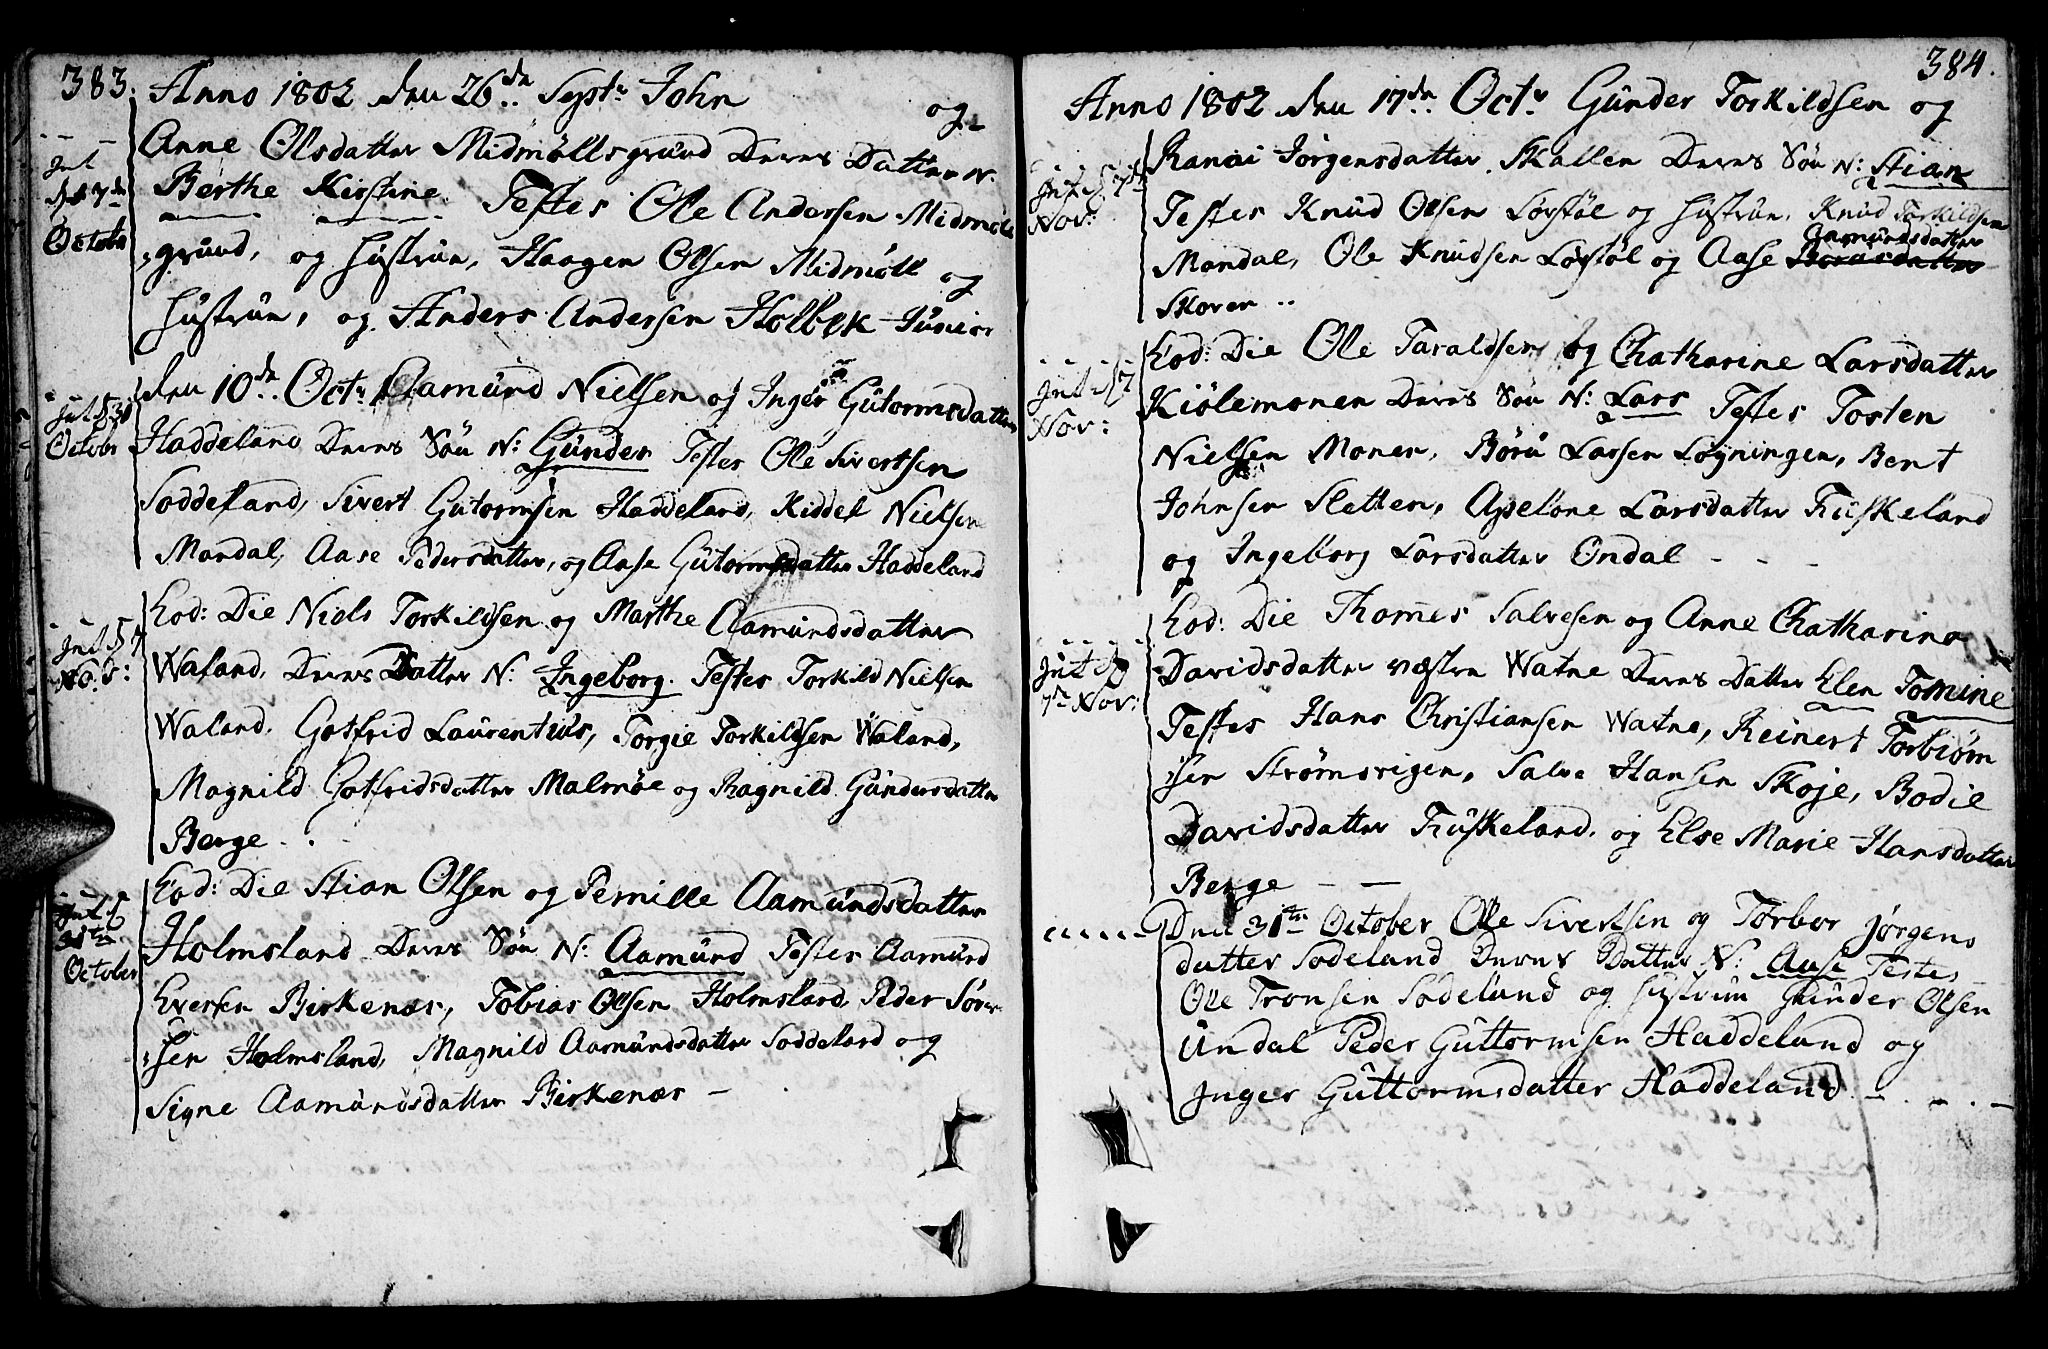 383. Anno 1802 den 26de Septr John og
Anne Olsdatter Midmøllsgrund Deres Datter N.
Int
d. 17de
Octobr
Berthe Kirstine. Testes Ole Andersen Midmøll
grund, og Hustrue, Haagen Olsen Midmøll og
Hustrue, og Anders Andersen Holbek Junior
den 10de Octr Aamund Nielsen og Inger Gutormsdatter
Int. 31
October
Haddeland Deres Søn N: Gunder Testes Ole Sivertsen
Soddeland, Sivert Gutormsen Haddeland, Kiddel Nielsen
Mandal, Aase Pedersdatter, og Aase Gutormsdatter Haddeland
Eod: Die Niels Torkildsen og Marthe Aamundsdatter
Int 7
Nov:
Waland, Deres Datter N: Ingeborg. Testes Torkild Nielsen
Waland, Gotfrid Laurentius, Torgie Torkildsen Waland,
Magnild Gotfridsdatter Malmøe og Ragnild Gundersdatter
Berge
Eod: Die Stian Olsen og Pernille Aamundsdatter
Int
31te
October
Holmsland Deres Søn N: Aamund Testes Aamund
Eversen Birkenær, Tobias Olsen Holmsland Peder Søren
sen Holmsland, Magnild Aamundsdatter Soddeland og
Signe Aamundsdatter Birkenær
384.
Anno 1802 den 17de Octr Gunder Torkildsen og
Int 7de
Nov:
Ranni Jørgensdatter Skallen Deres Søn N: Stian
Testes Knud Olsen Lovstøl og Hustrue, Knud Torkildsen
Mandal, Ole Knudsen Løvstøl og Aase Aamundsdatter
Skoren
Eod: Die Ole Taraldsen og Chatharine Larsdatter
Int 7
Nov:
Kiølemonen Deres Søn N: Lars Testes Tosten
Nielsen Monen, Børu Larsen Løyningen, Bent
Johnsen Sletten, Apelone Larsdatter Fuskeland
og Ingeborg Larsdatter Ondal
Eod: Die Thomes Salvesen og Anne Chatharina
Int
7de Nov:
Davidsdatter væstre Watne Deres Datter Elen Tomine
Testes Hans Christiansen Watne, Reinert Torbiørn
sen Strømsvigen, Salve Hansen Skoje, Bodie
Davidsdatter Fuskeland, og Else Marie Hansdatter
Berge
Den 31te October Ole Sivertsen og Torbor Jørgens
datter Sodeland Deres Datter N: Aase Testes
Ole Tronsen Sodeland og Hustrue Gunder Olsen
Undal Peder Guttormsen Haddeland og
Inger Guttormsdatter Haddeland